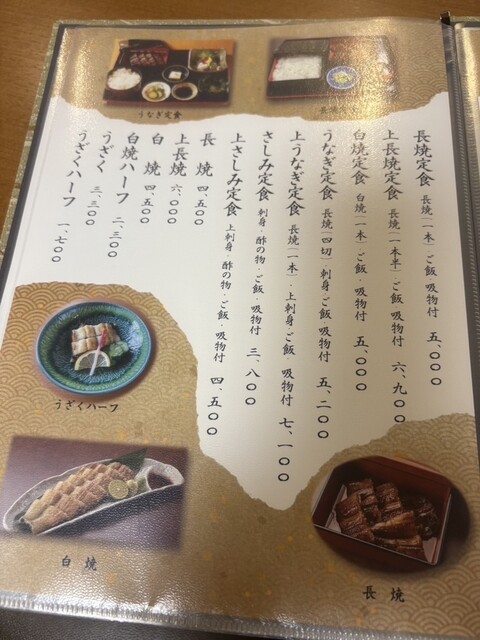 うなぎ定食
長焼定食 長焼(一本)・ご飯・吸物付 五、〇〇〇
上長焼定食 長焼(一本半)・ご飯・吸物付 六、九〇〇
白焼定食 白焼(一本)・ご飯・吸物付 五、〇〇〇
うなぎ定食 長焼(四切)・刺身・ご飯・吸物付 五、二〇〇
上うなぎ定食 長焼(一本)・上刺身・ご飯・吸物付 七、一〇〇
さしみ定食 刺身・酢の物・ご飯・吸物付 三、八〇〇
上さしみ定食 上刺身・酢の物・ご飯・吸物付 四、五〇〇
長焼 四、五〇〇
上長焼 六、〇〇〇
白焼 四、五〇〇
白焼ハーフ 二、三〇〇
うざく 三、三〇〇
うざくハーフ 一、七〇〇
うざくハーフ
白焼
長焼